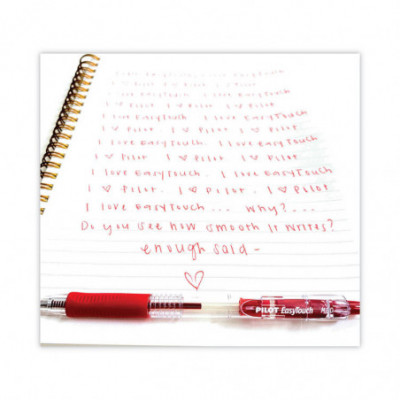 I love EasyTouch. I love EasyTouch
I ♥ Pilot. I ♥ Pilot. I ♥ Pilot
I love EasyTouch. I love EasyTouch
I ♥ Pilot. I ♥ Pilot. I ♥ Pilot
I love EasyTouch. I love EasyTouch
I ♥ Pilot. I ♥ Pilot. I ♥ Pilot
I love EasyTouch. I love EasyTouch
I ♥ Pilot. I ♥ Pilot. I ♥ Pilot
I love EasyTouch... Why?...
Do you see how smooth it writes?
enough said -
PILOT EasyTouch